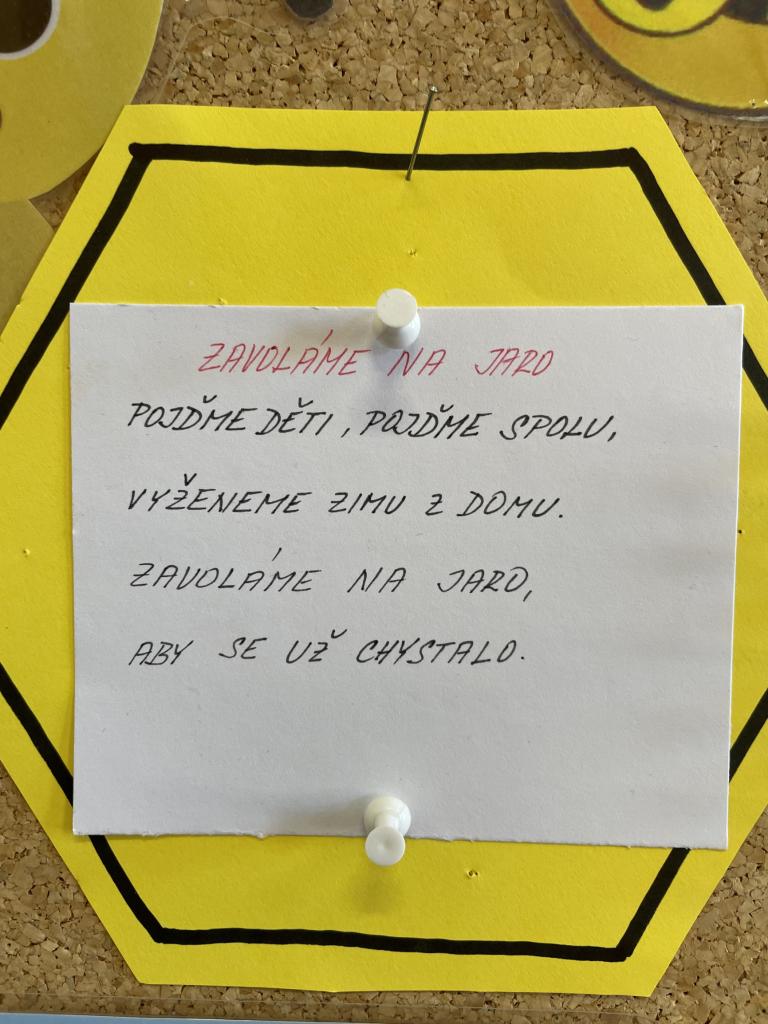 ZAVOLÁME NA JARO
POJĎME DĚTI, POJĎME SPOLU,
VYŽENEME ZIMU Z DOMU.
ZAVOLÁME NA JARO,
ABY SE UŽ CHYSTALO.